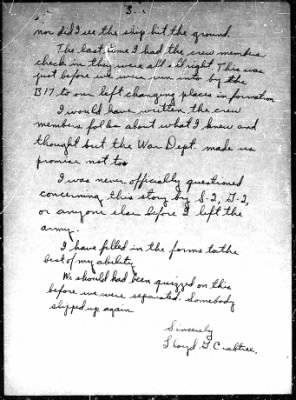 3.
nor did I see the ship hit the ground.
The last time I had the crew members
check in they were all allright. This was
just before we were run into by the
B17 to our left changing places in formation
I would have written the crew
members folks about what I knew and
thought but the War Dept. made us
promise not too
I was never officially questioned
concerning this story by S-2, G-2,
or anyone else before I left the
army.
I have filled in the forms to the
best of my ability
We should had been quizzed on this
before we were separated. Somebody
slipped up again
Sincerely
Lloyd G Crabtree.